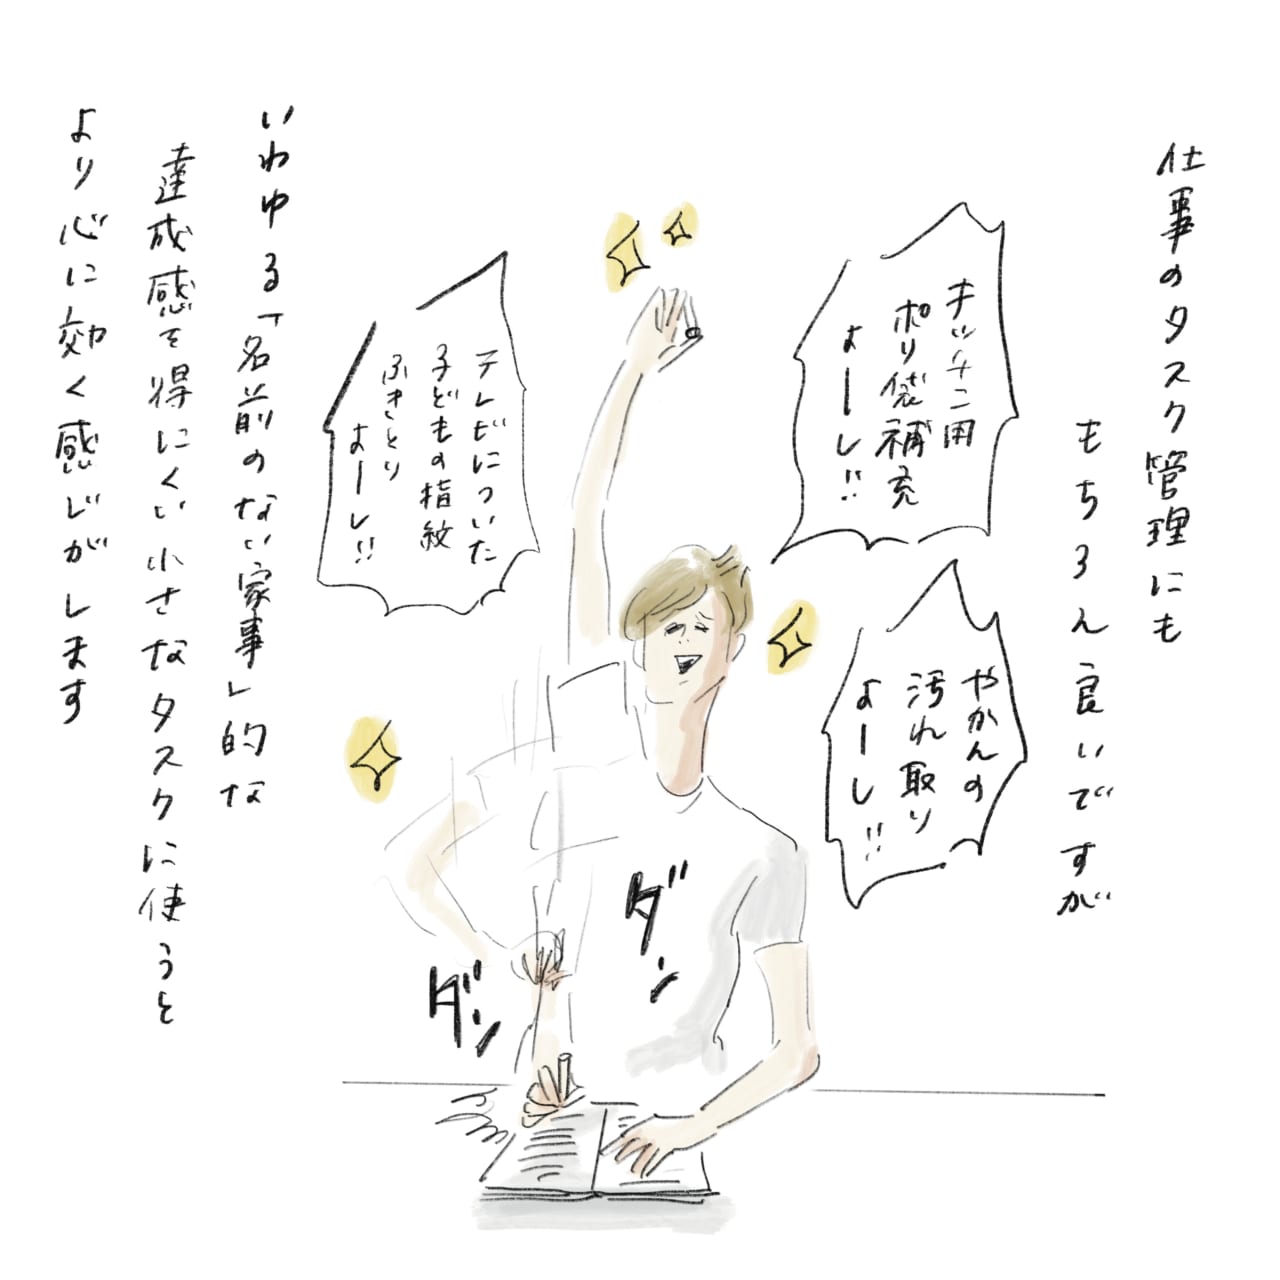 仕事のタスク管理にも
もちろん良いですが
キッチン用
ポリ袋補充
よーし!!
やかんの
汚れ取り
よーし!!
テレビについた
子どもの指紋
ふきとり
よーし!!
ダンッ
ダンッ
いわゆる「名前のない家事」的な
達成感を得にくい小さなタスクに使うと
より心に効く感じがします